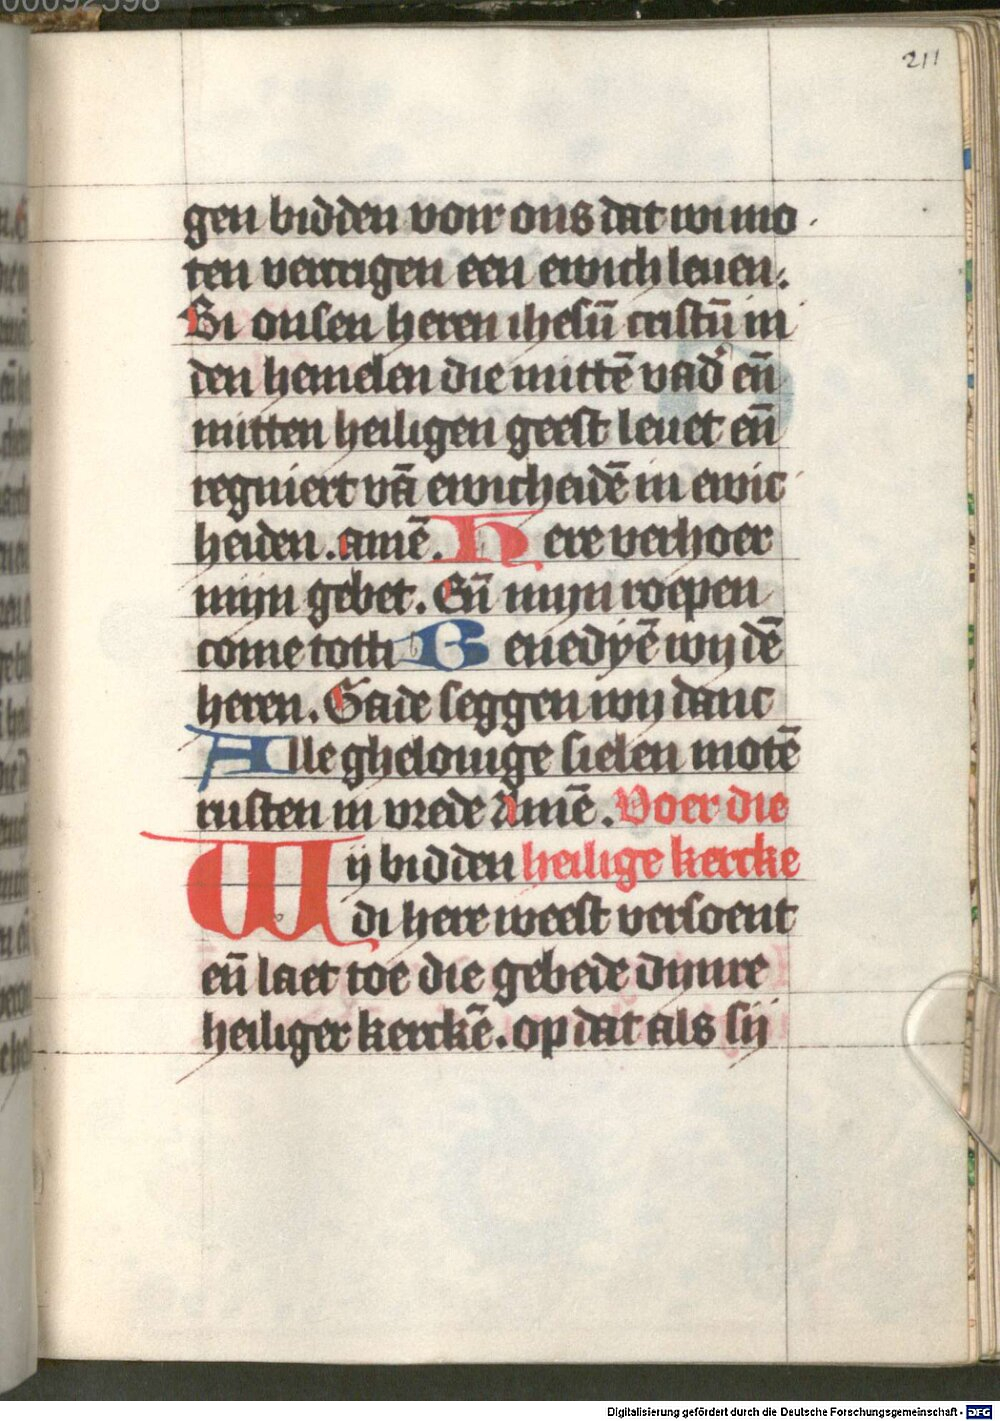 00092598
211
gen bidden voir ons dat wi mo
ten vercrigen een ewich leuen.
Bi onsen heren ihesū cristū in
den hemelen die mittē vad' eñ
mitten heiligen geest leuet eñ
regniert vā ewicheidē in ewic
heiden. amē. Here verhoer
mijn gebet. Eñ mijn roepen
come totti Benedyē wij dē
heren. Gade seggen wij danc
Alle ghelouige sielen motē
rusten in vrede Amē. Voer die
Wij bidden heilige kercke
di here weest versoent
eñ laet toe die gebede dijnre
heiliger kerckē. op dat als sij
Digitalisierung gefördert durch die Deutsche Forschungsgemeinschaft - DFG